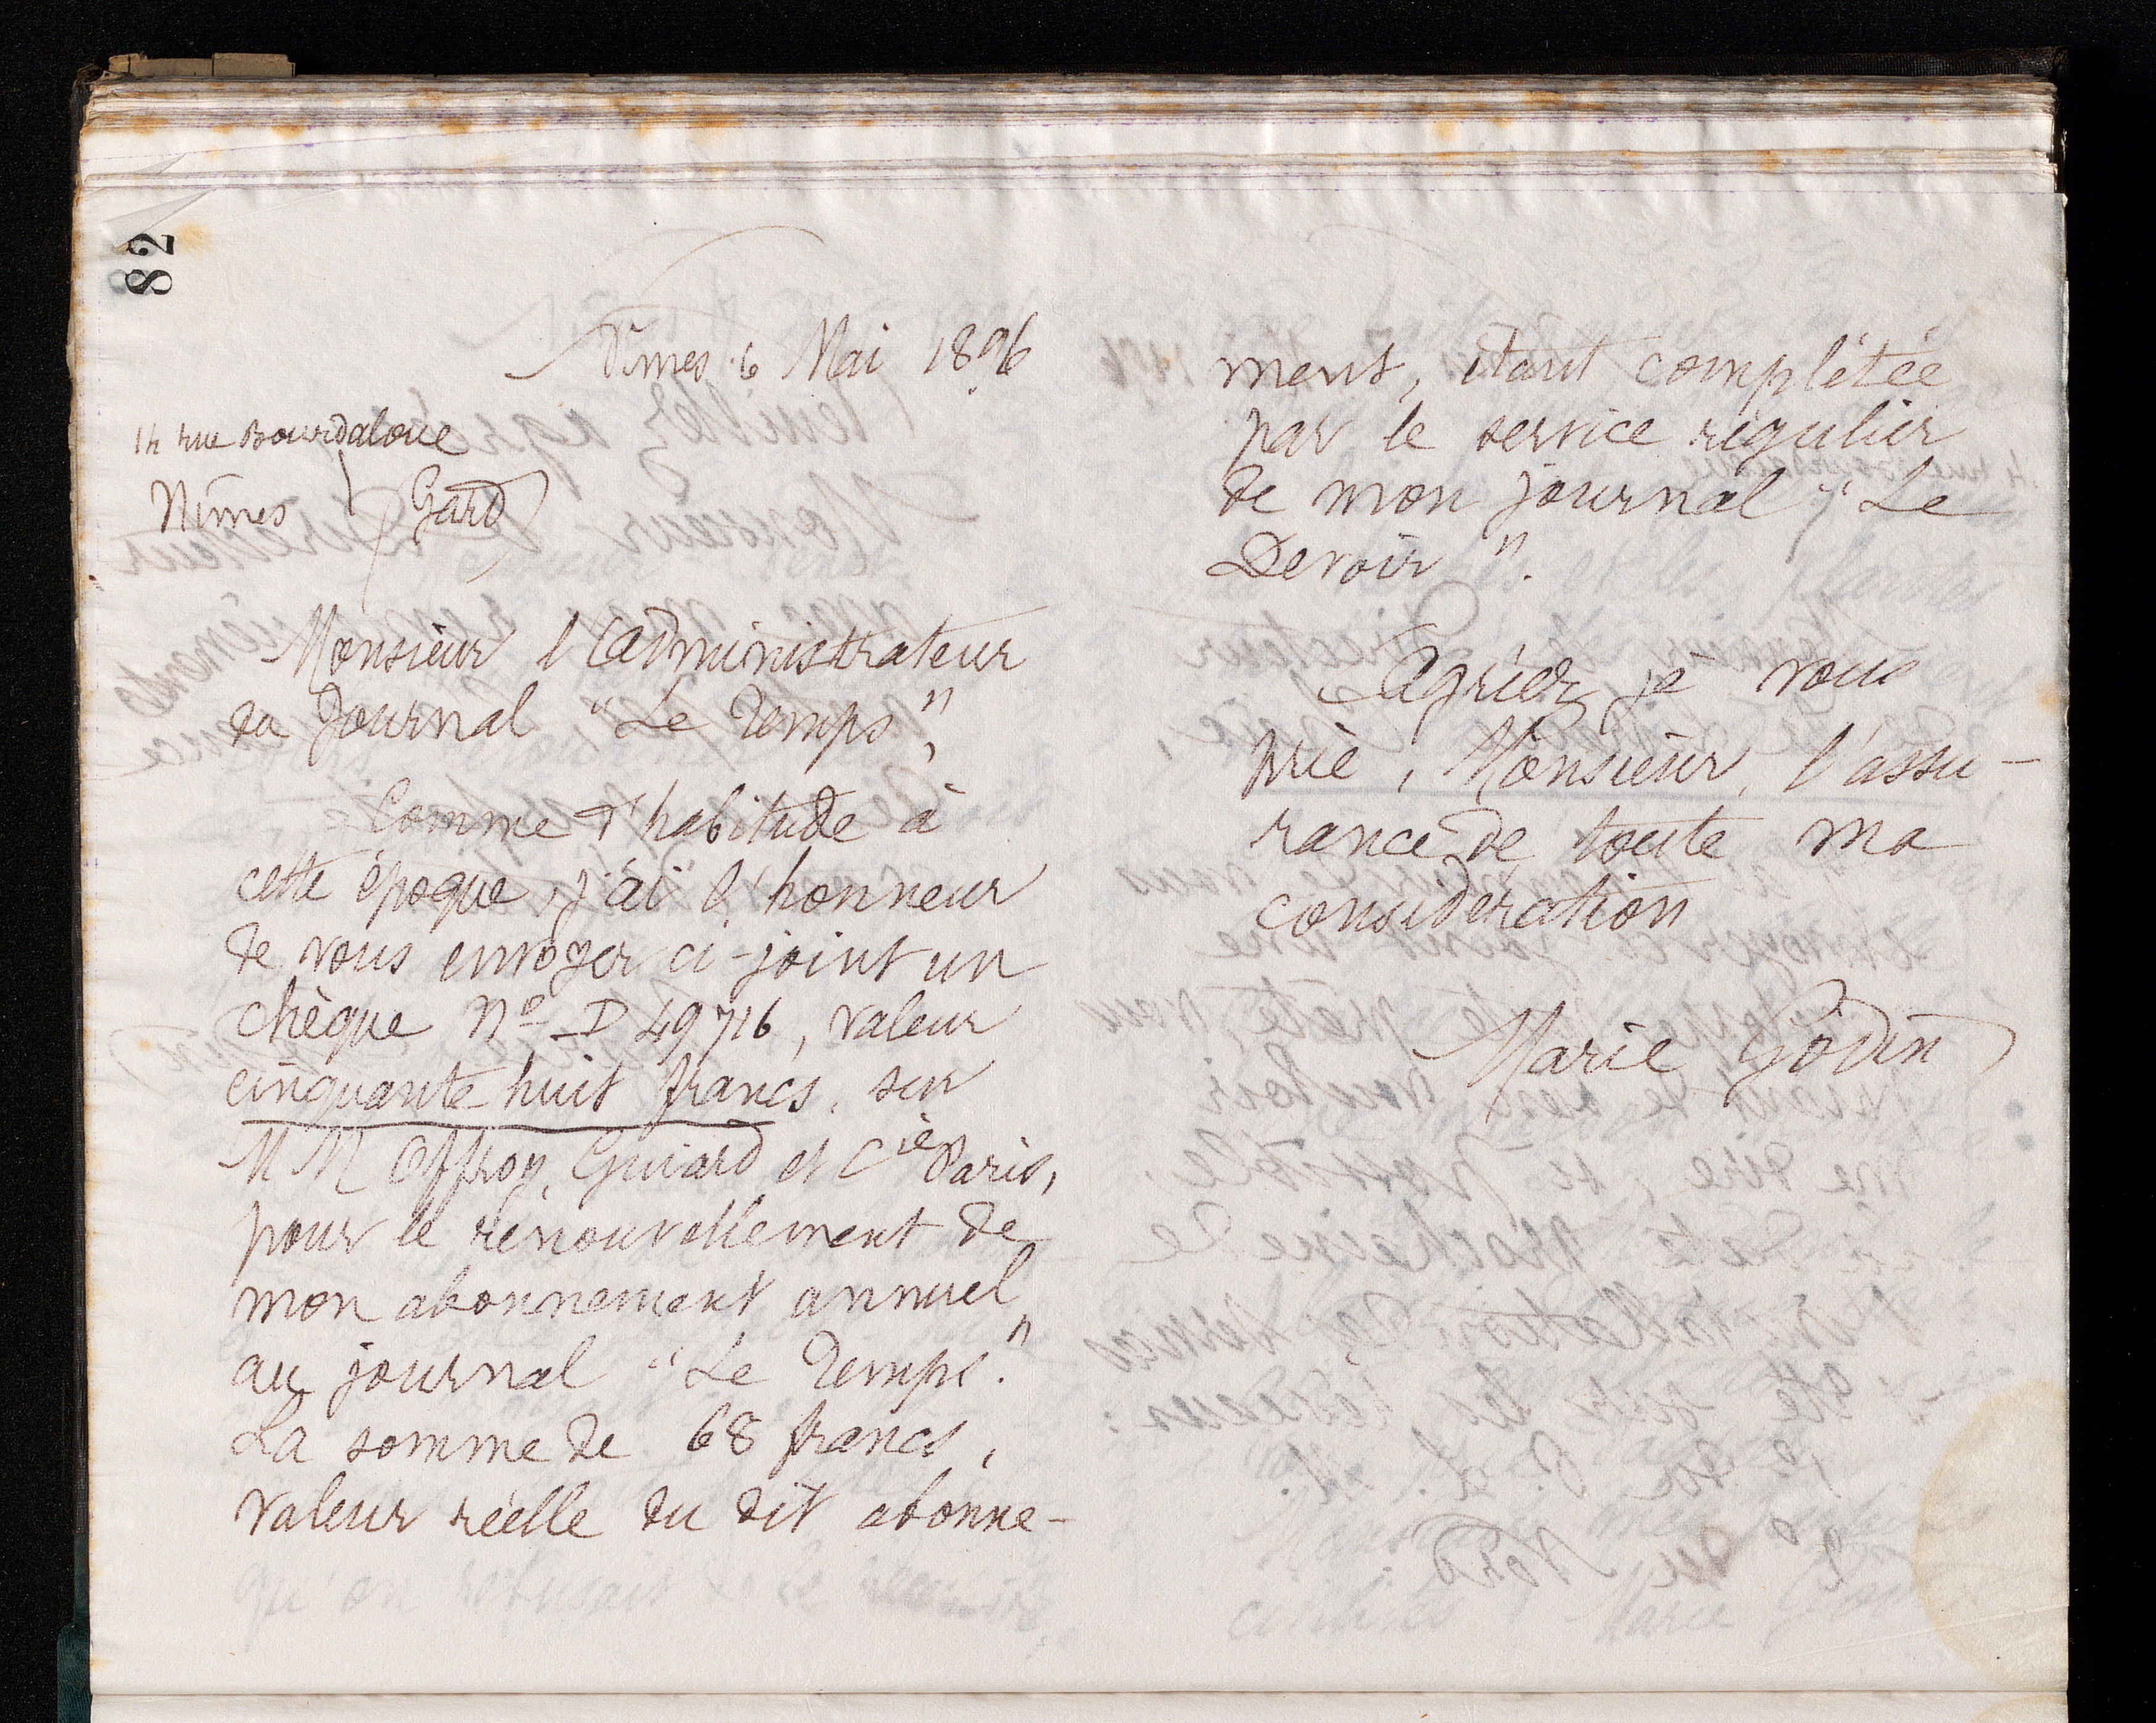 82
Nîmes 6 Mai 1896
14 rue Bourdaloue
Nîmes Gard
Monsieur l'Administrateur
du Journal "Le Temps",
Comme d'habitude à
cette époque, j'ai l'honneur
de vous envoyer ci-joint un
chèque Nº D 49716, valeur
cinquante-huit francs, sur
MM Offroy, Guiard et Cie Paris,
pour le renouvellement de
mon abonnement annuel
au journal "Le Temps".
La somme de 68 francs,
valeur réelle du dit abonne-
ment, étant complétée
par le service régulier
de mon journal "Le
Devoir".
Agréez, je vous
prie, Monsieur, l'assu-
rance de toute ma
considération
Marie Godin